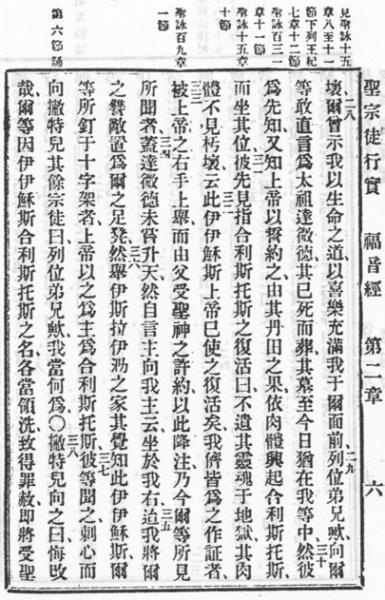 聖宗徒行實 福音經 第二章 六
見聖詠十五
章八至十一
節下列王紀
七章十二節
聖詠百三一
章十一節
聖詠十五章
十節
聖詠百九章
一節
第六節誦
二八壞爾曾示我以生命之道以喜樂充滿我于爾面前二九列位弟兄歟向爾
等敢直言爲太祖達微德其已死而葬其墓至今日猶在我等中三十然彼
爲先知又知上帝以誓約之由其丹田之果依肉體興起合利斯托斯
而坐其位三一彼先見指合利斯托斯之復活曰不遺其靈魂于地獄其肉
體不見朽壞云三二此伊伊穌斯上帝巳使之復活矣我儕皆爲之作証者
三三被上帝之右手上舉而由父受聖神之許約以此降注乃今爾等所見
所聞者三四蓋達微德未嘗升天然自言主向我主云坐於我右三五迨我將爾
之讐敵置爲爾之足凳三六然舉伊斯拉伊泐之家其覺知此伊伊穌斯爾
等所釘于十字架者上帝以之爲主爲合利斯托斯三七彼等聞之刺心而
向撇特兒其餘宗徒曰列位弟兄歟我當何爲○三八撇特兒向之曰悔改
哉爾等因伊伊穌斯合利斯托斯之名各當領洗致得罪赦即將受聖